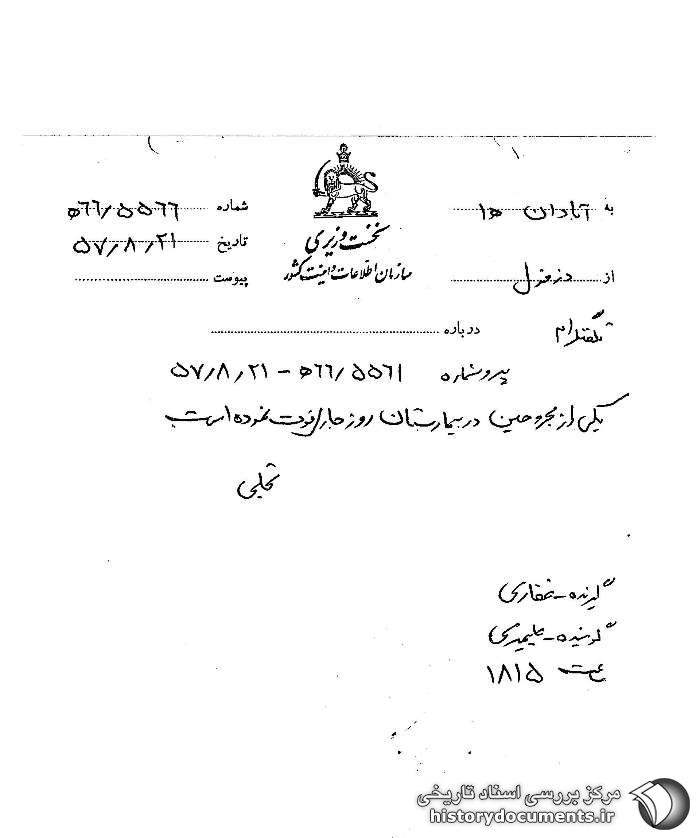 به آبادان ه‍ ۱
از دزفول
شماره ۵۵۶۶/ه‍ ۶۶
تاریخ ۵۷/۸/۲۱
پیوست
نخست وزیری
سازمان اطلاعات و امنیت کشور
تلفنگرام
درباره
پیرو شماره ۵۵۶۱/ه‍ ۶۶ - ۵۷/۸/۲۱
یکی از مجروحین در بیمارستان روز جاری فوت نموده است
تجلی
گیرنده - غفاری
گوینده -
ساعت ۱۸۱۵
مرکز بررسی اسناد تاریخی
historydocuments.ir